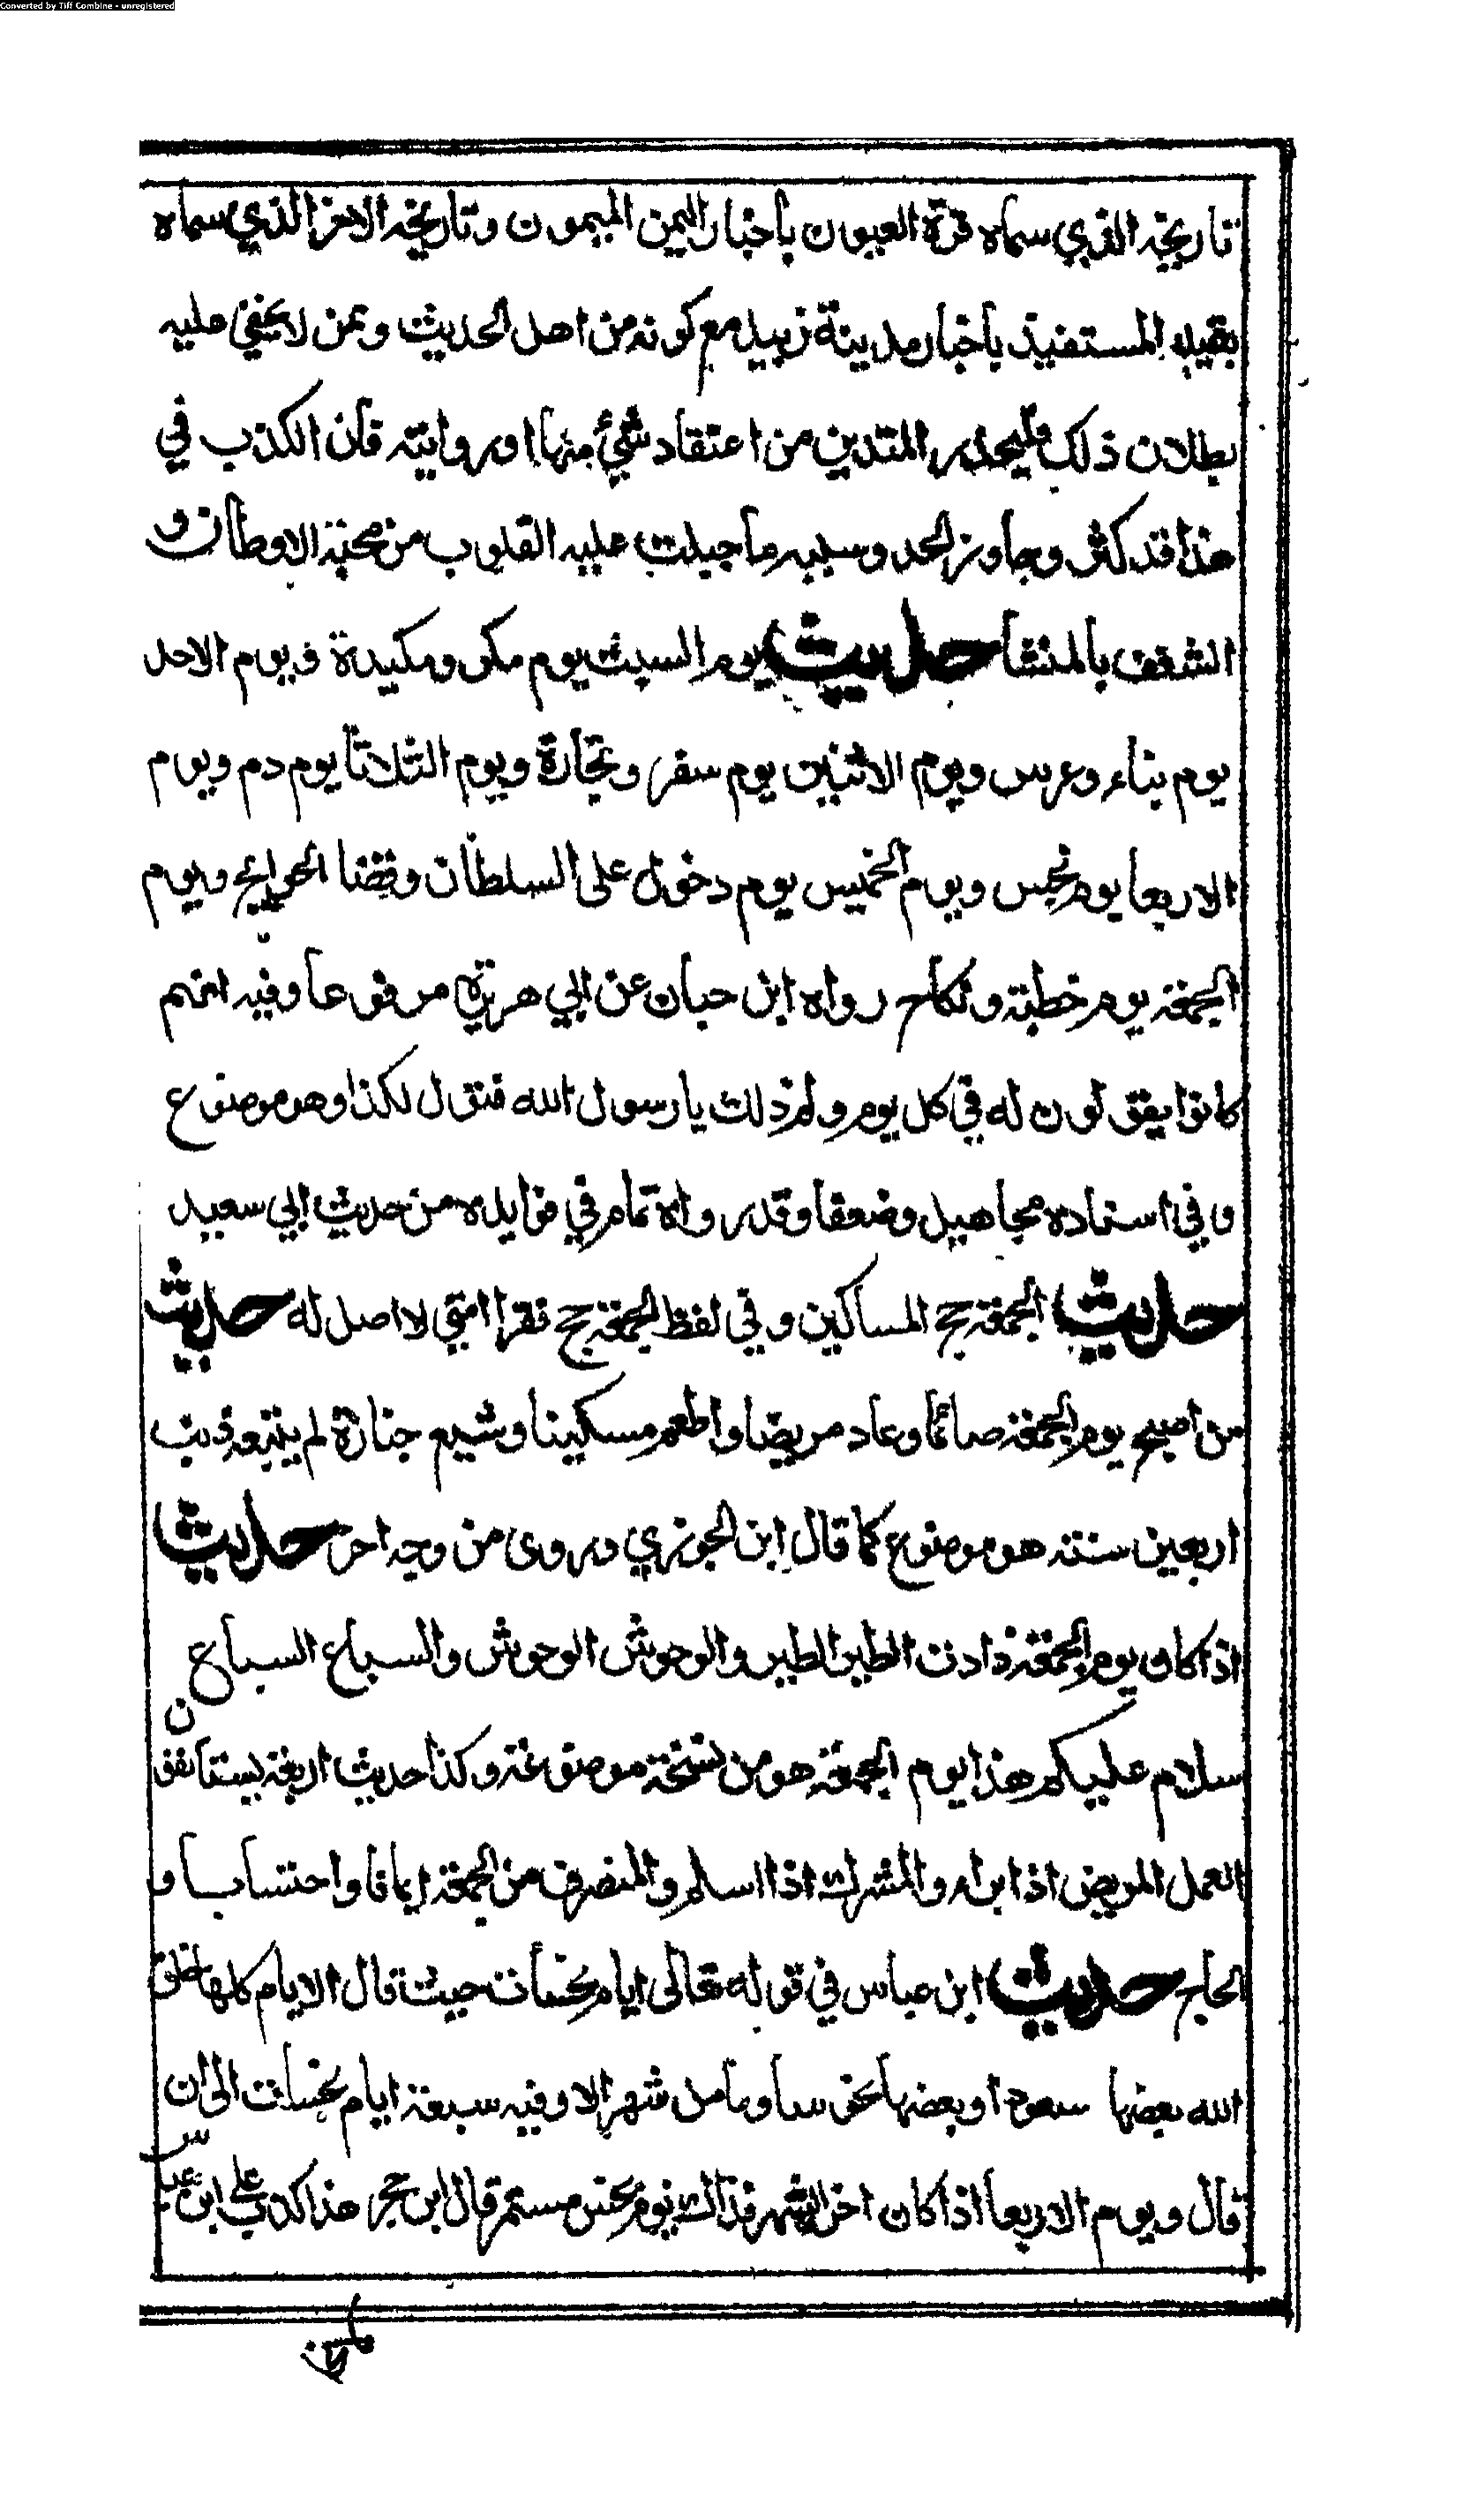 Converted by Tiff Combine - unregistered
تاريخه الذي سماه قرة العيون بأخبار اليمن الميمون وتاريخه الاخر الذي سماه
بغية المستفيد باخبار مدينة زبيد مع كونه من اهل الحديث وممن لا يخفى عليه
بطلان ذلك فليحذر المتدين من اعتقاد شئ منها او روايته فان الكذب في
هذا قد كثر وجاوز الحد وسببه ما جبلت عليه القلوب من محبة الاوطان و
الشغف بالمنشأ حديث يوم السبت يوم مكر ومكيدة ويوم الاحد
يوم بناء وعرس ويوم الاثنين يوم سفر وتجارة ويوم الثلاثا يوم دم ويوم
الاربعا يوم نحس ويوم الخميس يوم دخول على السلطان وقضا الحوايج ويوم
الجمعة يوم خطبة ونكاح رواه ابن حبان عن ابي هريرة مرفوعا وفيه انهم
كانوا يقولون له في كل يوم ولم ذلك يا رسول الله فيقول لكذا وهو موضوع
وفي اسناده مجاهيل وضعفا وقد رواه تمام في فوايده من حديث ابي سعيد
حديث الجمعة حج المساكين وفي لفظ الجمعة حج فقرا امتي لا اصل له حديث
من اصبح يوم الجمعة صائما وعاد مريضا واطعم مسكينا وشيع جنازة لم يتبعه ذنب
اربعين سنة هو موضوع كما قال ابن الجوزي وروى من وجه اخر حديث
اذا كان يوم الجمعة نادت الطير الطير والوحوش الوحوش والسباع السباع
سلام عليكم هذا يوم الجمعة هو من نسخة موضوعة وكذا حديث اربعة يستانفون
العمل المريض اذا برا والمشرك اذا اسلم والمنصرف من الجمعة ايمانا واحتسابا و
الحاج حديث ابن عباس في قوله تعالى ايام نحسات حيث قال الايام كلها خلق
الله بعضها سعودا وبعضها نحوسا وما من شهر الا وفيه سبعة ايام نحسات الى ان
قال ويوم الاربعا اذا كان اخر الشهر فذالك يوم نحس مستمر قال ابن حجر هذا كذب على ابن عباس